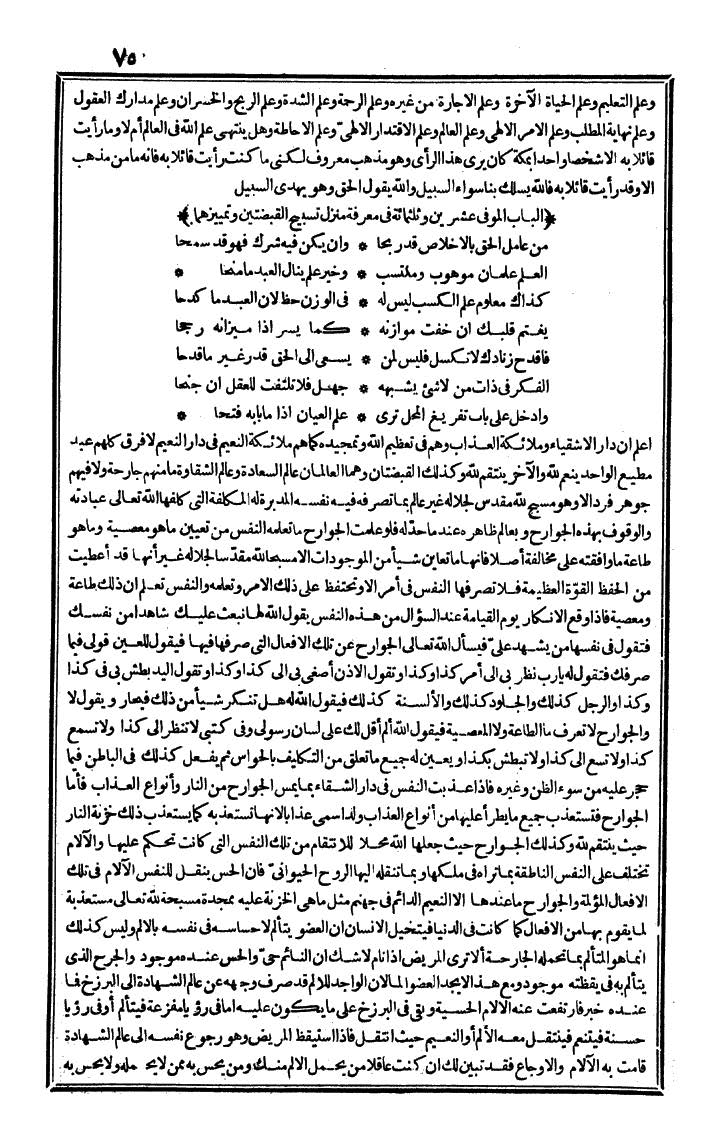 ٧٥
وعلم التعليم وعلم الحياة الآخرة وعلم الاجارة من غيره وعلم الرحمة وعلم الشدة وعلم الربح والخسران وعلم مدارك العقول
وعلم نهاية المطلب وعلم الامر الالهى وعلم العالم وعلم الاقتدار الالهىّ وعلم الاحاطة وهل ينتهى علم الله فى العالم أم لا وما رأيت
قائلا به الا شخصا واحدا بمكة كان يرى هذا الرأى وهو مذهب معروف لكنى ما كنت رأيت قائلا به فانه ما من مذهب
الا وقد رأيت قائلا به فالله يسلك بنا سواء السبيل والله يقول الحق وهو يهدى السبيل
﴿الباب الموفى عشرين وثلثمائة فى معرفة منزل تسبيح القبضتين وتمييزهما﴾
من عامل الحق بالاخلاص قد ربحا * وان يكن فيه شرك فهو قد سمحا
العلم علمان موهوب ومكتسب * وخير علم ينال العبد ما منحا *
كذاك معلوم علم الكسب ليس له * فى الوزن حظ لان العبد ما كدحا
يغتم قلبك ان خفت موازنه * كما يسر اذا ميزانه رجحا
فاقدح زنادك لا تكسل فليس لمن * يسعى الى الحق قدر غير ما قدحا
الفكر فى ذات من لا شئ يشبهه * جهل فلا تلتفت للعقل ان جنحا
وادخل على باب تفريغ المحل ترى * علم العيان اذا ما بابه فتحا *
اعلم ان دار الاشقياء وملائكة العذاب وهم فى تعظيم الله وتمجيده كما هم ملائكة النعيم فى دار النعيم لا فرق كلهم عبد
مطيع الواحد ينعم لله والآخر ينتقم لله وكذلك القبضتان وهما العالمان عالم السعادة وعالم الشقاوة ما منهم جارحة ولا فيهم
جوهر فرد الا وهو مسبح لله مقدس لجلاله غير عالم بما تصرفه فيه نفسه المدبرة له المكلفة التى كلفها الله تعالى عبادته
والوقوف بهذه الجوارح وبعالم ظاهره عند ما حدّ له فلو علمت الجوارح ما تعلمه النفس من تعيين ما هو معصية وما هو
طاعة ما وافقته على مخالفة أصلا فانها ما تعاين شيأ من الموجودات الا مسبحا لله مقدّسا لجلاله غير أنها قد أعطيت
من الحفظ القوّة العظيمة فلا تصرفها النفس فى أمر الا وتحتفظ على ذلك الامر وتعلمه والنفس تعلم ان ذلك طاعة
ومعصية فاذا وقع الانكار يوم القيامة عند السؤال من هذه النفس يقول الله لها نبعث عليك شاهدا من نفسك
فتقول فى نفسها من يشهد علىّ فيسأل الله تعالى الجوارح عن تلك الافعال التى صرفها فيها فيقول للعين قولى فيما
صرفك فتقول له يا رب نظر بى الى أمر كذا وكذا وتقول الاذن أصغى بى الى كذا وكذا وتقول اليد بطش بى فى كذا
وكذا والرجل كذلك والجلود كذلك والالسنة كذلك فيقول الله له هل تنكر شيأ من ذلك فيحار ويقول لا
والجوارح لا تعرف ما الطاعة ولا المعصية فيقول الله ألم أقل لك على لسان رسولى وفى كتبى لا تنظر الى كذا ولا تسمع
كذا ولا تسع الى كذا ولا تبطش بكذا ويعين له جميع ما تعلق من التكليف بالحواس ثم يفعل كذلك فى الباطن فيما
حجر عليه من سوء الظن وغيره فاذا عذبت النفس فى دار الشقاء بما يمس الجوارح من النار وأنواع العذاب فأما
الجوارح فتستعذب جميع ما يطرأ عليها من أنواع العذاب ولذا سمى عذابا لانها تستعذبه كما يستعذب ذلك خزنة النار
حيث ينتقم لله وكذلك الجوارح حيث جعلها الله محلا للانتقام من تلك النفس التى كانت تحكم عليها والآلام
تختلف على النفس الناطقة بما تراه فى ملكها وبما تنقله اليها الروح الحيوانىّ فان الحس ينقل للنفس الآلام فى تلك
الافعال المؤلمة والجوارح ما عندها الا النعيم الدائم فى جهنم مثل ما هى الخزنة عليه ممجدة مسبحة لله تعالى مستعذبة
لما يقوم بها من الافعال كما كانت فى الدنيا فيتخيل الانسان ان العضو يتألم لاحساسه فى نفسه بالالم وليس كذلك
انما هو المتألم بما تحمله الجارحة ألا ترى المريض اذا نام لا شك ان النائم حىّ والحس عنده موجود والجرح الذى
يتألم به فى يقظته موجود ومع هذا لا يجد العضو ألما لان الواجد للالم قد صرف وجهه عن عالم الشهادة الى البرزخ فما
عنده خبر فارتفعت عنه الآلام الحسية وبقى فى البرزخ على ما يكون عليه اما فى رؤيا مفزعة فيتألم أو فى رؤيا
حسنة فيتنعم فينتقل معه الألم أو النعيم حيث انتقل فاذا استيقظ المريض وهو رجوع نفسه الى عالم الشهادة
قامت به الآلام والاوجاع فقد تبين لك ان كنت عاقلا من يحمل الالم منك ومن يحس به ممن لا يحمله ولا يحس به